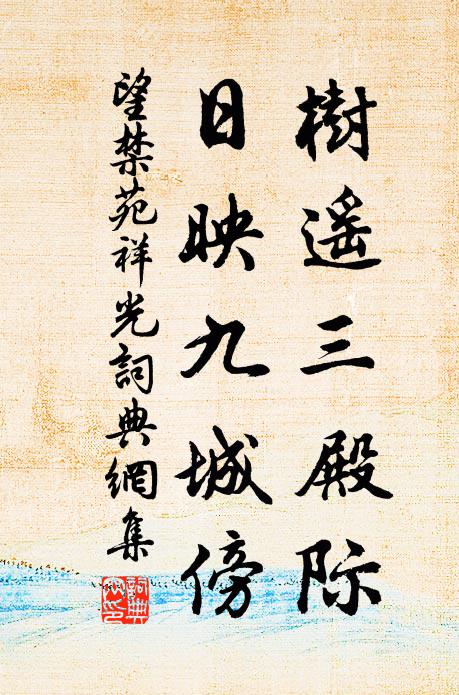 樹遥三殿际
日映九城傍
望禁苑祥光詞典網集